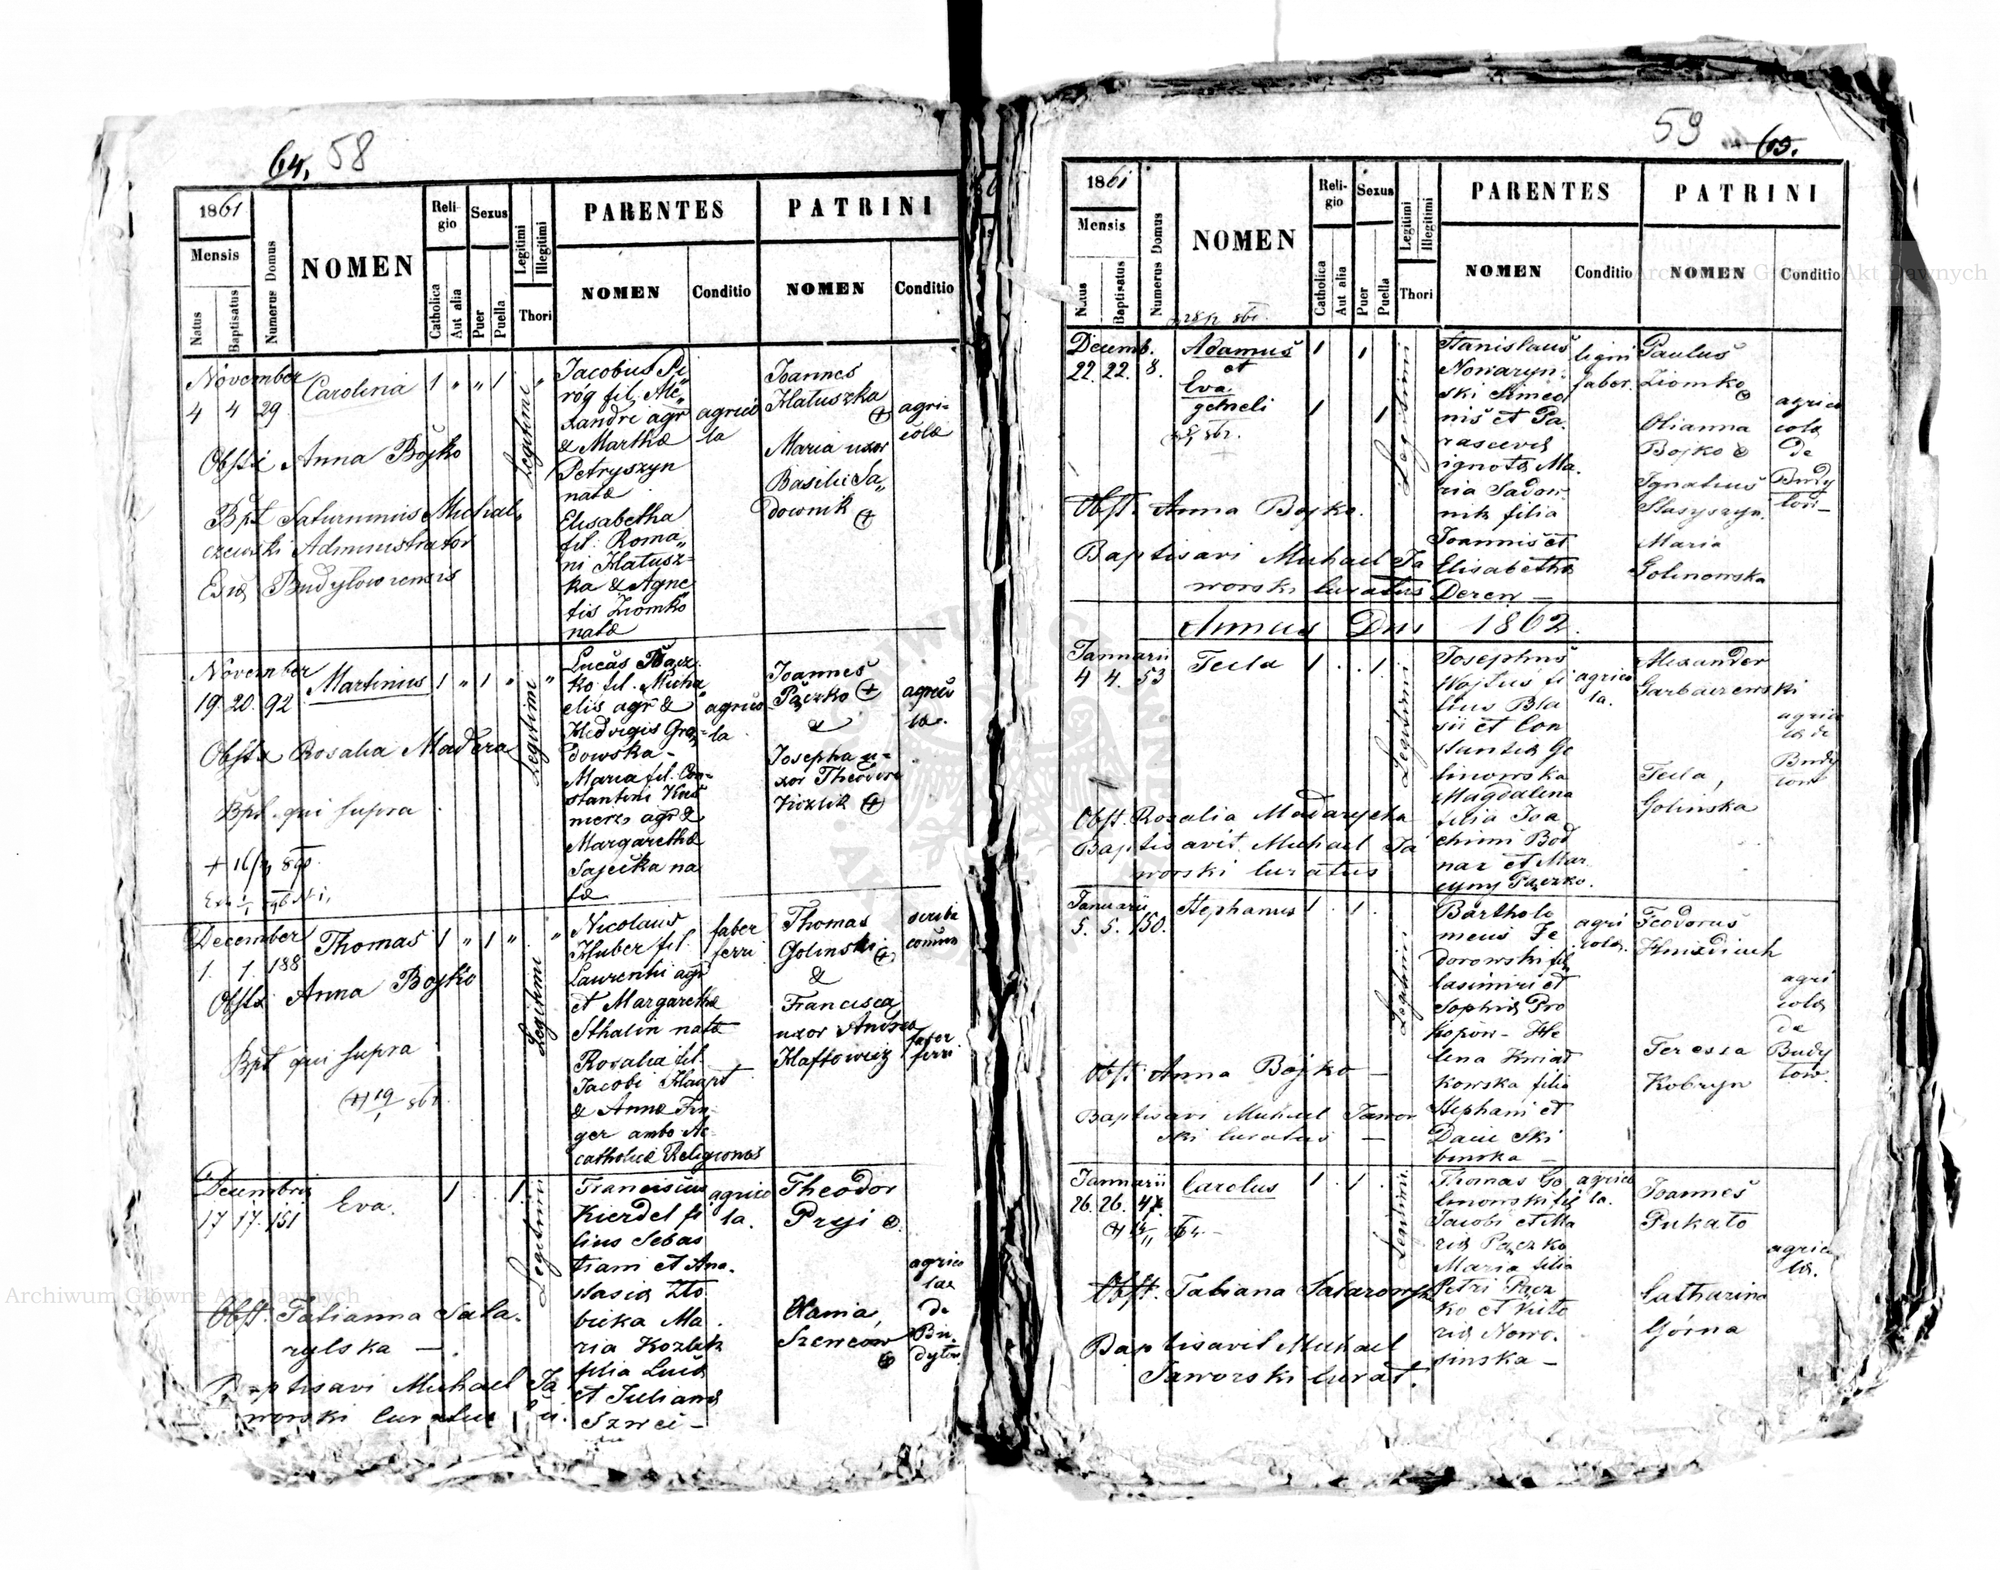 64. 58
1861
Mensis
Natus
Baptisatus
Numerus Domus
NOMEN
Religio
Catholica
Aut alia
Sexus
Puer
Puella
Legitimi
Illegitimi
Thori
PARENTES
NOMEN
Conditio
PATRINI
NOMEN
Conditio
November
4 4 29
Carolina 1 " " 1 "
Legitimi
Obstx Anna Bojko
Bpt Saturninus Michal„
czewski Administrator
Budylowiensis
Jacobus Pi
róg fil. Ale„
xandri agr
& Marthæ
Petryszyn
natæ
Elisabetha
fil. Roma„
ni Hatusz-
ka & Agne
tis Ziomko
natæ
agrico
la
Joannes
Hatuszka
Maria uxor
Basilii Sa„
downik
agri-
colæ
November
19 20 92
Martinus 1 " 1 " "
Legitimi
Obstx Rosalia Madera
Bpt. qui supra
Lucas Pączko
fil. Micha
elis agr &
Hedvigis Gra-
dowska -
Maria fil. Con-
stantini
agr &
Margarethæ
Sajecka na
tæ
agrico-
la
Joannes
Pączko
&
Josepha u-
xor Theodori
Kozlik
December
1. 1. 188
Thomas 1 " 1 " "
Legitimi
Obstx Anna Bojko
Bpt qui supra
Nicolaus
Huber fil.
Laurentii agr
et Margaretha
Sthalin natæ
Rosalia fil.
Jacobi
& Annæ Fin
ger ambo Ac
catholicæ Religiones
faber
ferri
Thomas
Golinski
&
Francisca
uxor Andrea
Haftowicz
scriba
comun
faber
ferri
Decembris
17 17. 151
Eva. 1 . . 1.
Legitimi
Obst. Tatianna Sata-
rylska —
Baptisavi Michael Ja
worski Curatus
Franciscus
Kierdel fi
lius Sebas
tiani et Ana.
stasiæ Zło
bicka Ma
ria Kozlek
filia Lucæ
et Julianæ
Szwei -
agrico
la.
Theodor
Pryj
Xamia,
Szewcow
agrico
læ
de
Bu.
dyłow
59 65.
1861
Mensis
Natus
Baptisatus
Numerus Domus
NOMEN
Religio
Catholica
Aut alia
Sexus
Puer
Puella
Legitimi
Illegitimi
Thori
PARENTES
NOMEN
Conditio
PATRINI
NOMEN
Conditio
Decemb.
22. 22. 8.
Adamus 1 1
et
Eva
gemeli 1 1
Legitimi
Obst. Anna Bojko.
Baptisavi Michael Ja
worski Curatus
Stanislaus
Nowaryn-
ski Simeo
nis et Pa.
rascevæ
ignotæ Ma.
ria Sadow
nik filia
Joannis et
Elisabethæ
Deren —
ligni
faber.
Paulus
Ziomko
Olianna
Bojko
Ignatius
Stasyszyn.
Maria
Golinowska
agrico
colæ
de
Budy
low—
Annus Dni 1862.
Januarii
4 4. 53
Tecla 1 . . 1.
Legitimi
Obst. Rosalia Madarycka
Baptisavit Michael Ja
worski Curatus
Josephus
Wojtus fi
lius Bla
sii et Con
stantiæ Go
linowska
Magdalena
filia Joa
chimi Bod
nar et Mar
cyny Pączko.
agrico
la.
Alexander
Garbaczewski
Tecla,
Golinska
agrico
læ de
Budy
low
Januarii
5. 5. 150.
Stephanus 1 . 1.
Legitimi
Obst. Anna Bojko —
Baptisavi Michael Jawor
ski Curatus —
Bartholo
meus Fe
dorowski fil
Casimiri et
Sophiæ Pro
kopow— He
lena Kwiat
kowska filia
Stephani et
Daciæ Ski
binska —
agri
cola.
Teodorus
Hniździuch
Teressa
Kobryn
agri
colæ
de
Budy
low.
Januarii
26. 26. 47.
Carolus 1 . 1.
Legitimi
Obst. Tatiana Satarowska
Baptisavit Michael
Jaworski Curat.
Thomas Go
linowski fil
Jacobi et Ma
riæ Pączko
Maria filia
Petri Pącz
ko et Victo
riæ Nowo.
sinska —
agrico
la.
Joannes
Pukato
Catharina
Górna
agrico
læ.
Archiwum Główne Akt Dawnych
Archiwum Główne Akt Dawnych